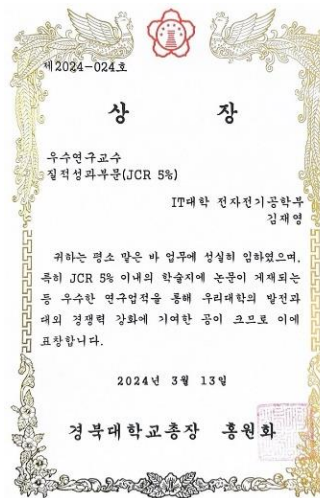 제2024-024호
상 장
우수연구교수
질적성과부문(JCR 5%)
IT대학 전자전기공학부
김재영
귀하는 평소 맡은 바 업무에 성실히 임하였으며,
특히 JCR 5% 이내의 학술지에 논문이 게재되는
등 우수한 연구업적을 통해 우리대학의 발전과
대외 경쟁력 강화에 기여한 공이 크므로 이에
표창합니다.
2024년 3월 13일
경북대학교총장 홍원화